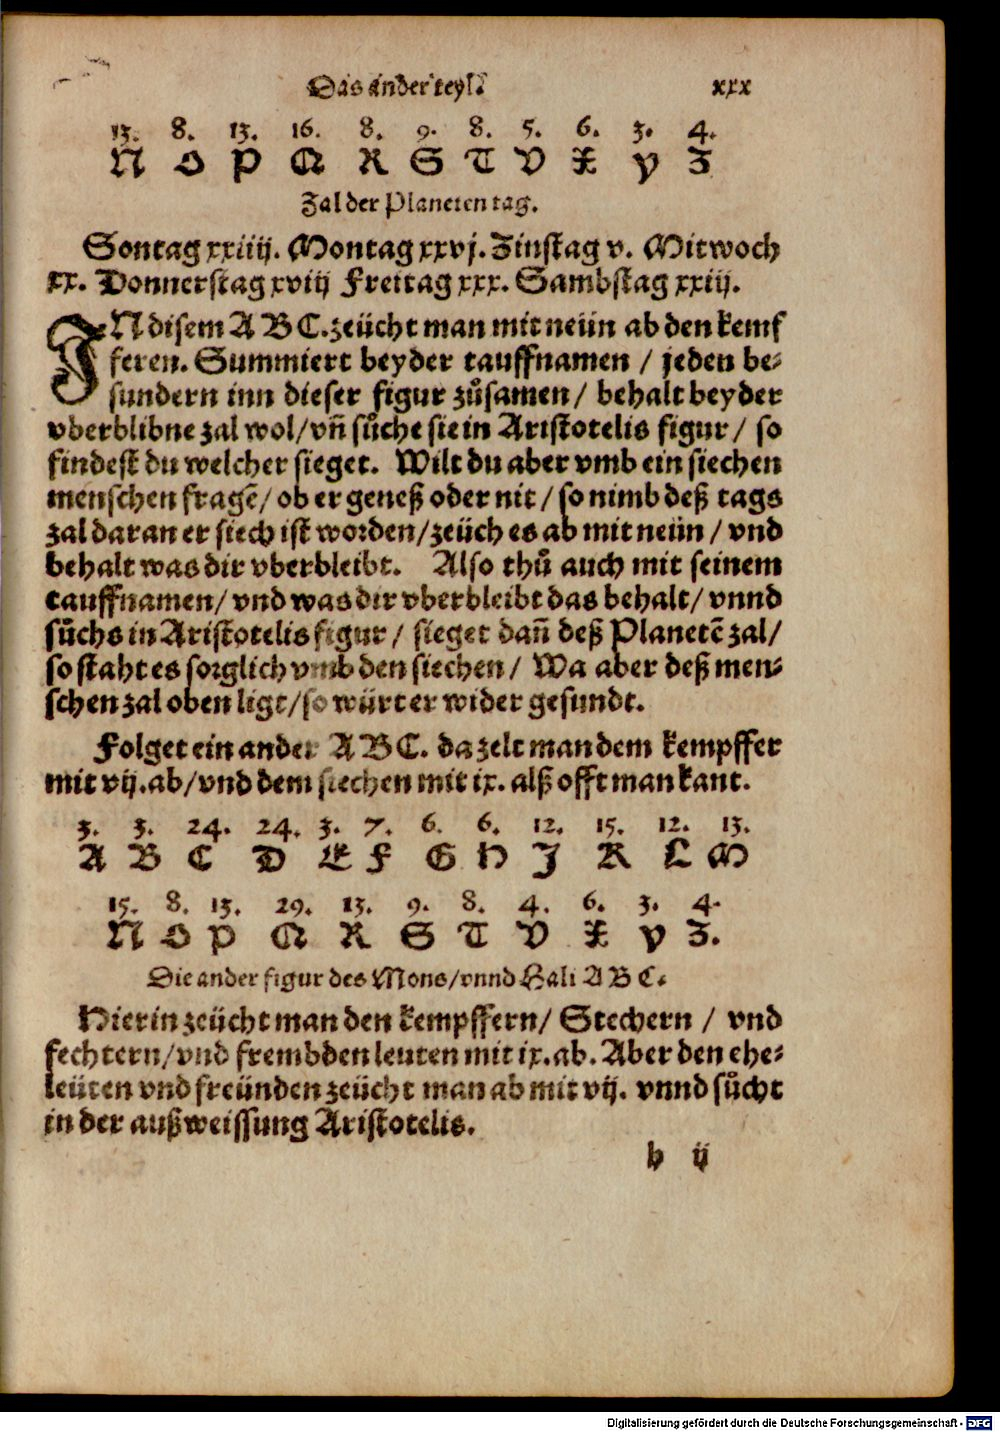 Das ander teyl. xxx
13. 8. 13. 16. 8. 9. 8. 5. 6. 3. 4.
N O P Q R S T V X Y Z
Zal der Planeten tag.
Sontag xxiiij. Montag xxvj. Zinstag v. Mitwoch
XX. Donnerstag xviij Freitag xxx. Sambstag xxiij.
IN disem A B C. zeücht man mit neün ab den kempf
feren. Summiert beyder tauffnamen / jeden be⸗
sundern inn dieser figur zůsamen / behalt beyder
vberblibne zal wol / vñ sůche sie in Aristotelis figur / so
findest du welcher sieget. Wilt du aber vmb ein siechen
menschen fragẽ / ob er geneß oder nit / so nimb deß tags
zal daran er siech ist worden / zeüch es ab mit neün / vnd
behalt was dir vberbleibt. Also thů auch mit seinem
tauffnamen / vnd was dir vberbleibt das behalt / vnnd
sůchs in Aristotelis figur / sieget dañ deß Planetẽ zal /
so staht es sorglich vmb den siechen / Wa aber deß men⸗
schen zal oben ligt / so würt er wider gesundt.
Folget ein ander A B C. da zelt man dem kempffer
mit vij. ab / vnd dem siechen mit ix. alß offt man kant.
3. 3. 24. 24. 3. 7. 6. 6. 12. 15. 12. 13.
A B C D E F G H J K L M
15. 8. 13. 29. 13. 9. 8. 4. 6. 3. 4.
N O P Q R S T V X Y Z.
Die ander figur des Mons / vnnd Hali A B C.
Hierin zeücht man den kempffern / Stechern / vnd
fechtern / vnd frembden leuten mit ix. ab. Aber den ehe⸗
leüten vnd freünden zeücht man ab mit vij. vnnd sůcht
in der außweissung Aristotelis.
h ij
Digitalisierung gefördert durch die Deutsche Forschungsgemeinschaft - DFG